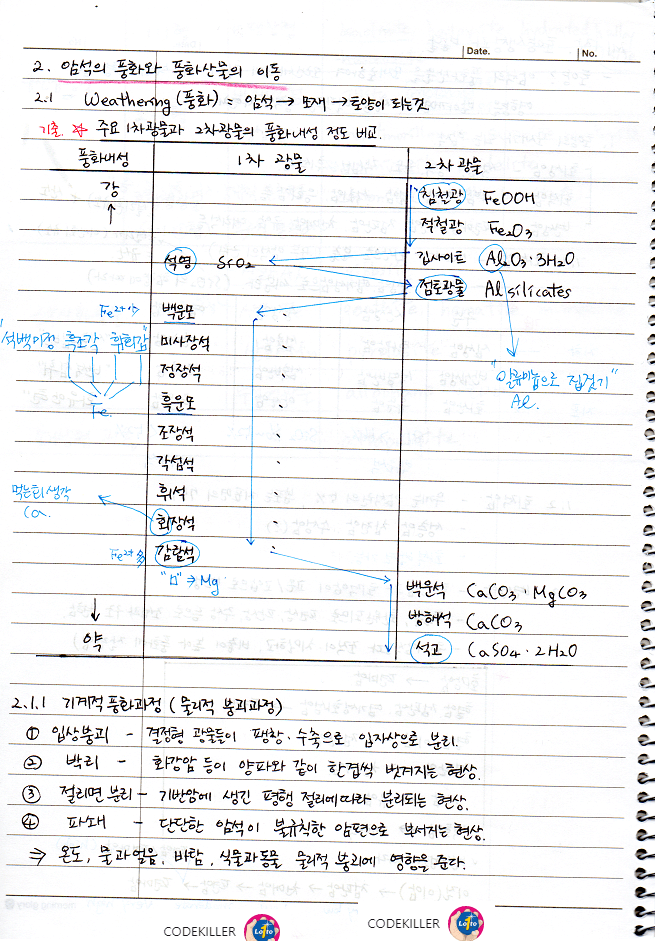 Date.
No.
2. 암석의 풍화와 풍화산물의 이동
2.1 Weathering (풍화) = 암석 → 모재 → 토양이 되는것
기출. ☆ 주요 1차광물과 2차광물의 풍화내성 정도 비교.
풍화내성 1차 광물 2차 광물
강 침철광 FeOOH
↑ 적철광 Fe2O3
석영 SiO2 깁사이트 Al2O3·3H2O
점토광물 Al silicates
Fe2+ 백운모
"석백미정 흑조각 휘회감" 미사장석
정장석 "알류미늄으로 집짓기"
Fe. 흑운모 Al.
조장석
각섬석
먹는회 생각 휘석
Ca. 회장석
Fe2+ 多 감람석
"ㅁ" ⇒ Mg 백운석 CaCO3·MgCO3
↓ 방해석 CaCO3
약 석고 CaSO4·2H2O
2.1.1 기계적 풍화과정 (물리적 붕괴과정)
① 입상붕괴 - 결정형 광물들이 팽창·수축으로 입자상으로 분리.
② 박리 - 화강암 등이 양파와 같이 한겹씩 벗겨지는 현상.
③ 절리면 분리 - 기반암에 생긴 평행 절리에따라 분리되는 현상.
④ 파쇄 - 단단한 암석이 불규칙한 암편으로 부서지는 현상.
⇒ 온도, 물과얼음, 바람, 식물과동물 물리적 붕괴에 영향을 준다.
CODEKILLER Lotto
CODEKILLER Lotto